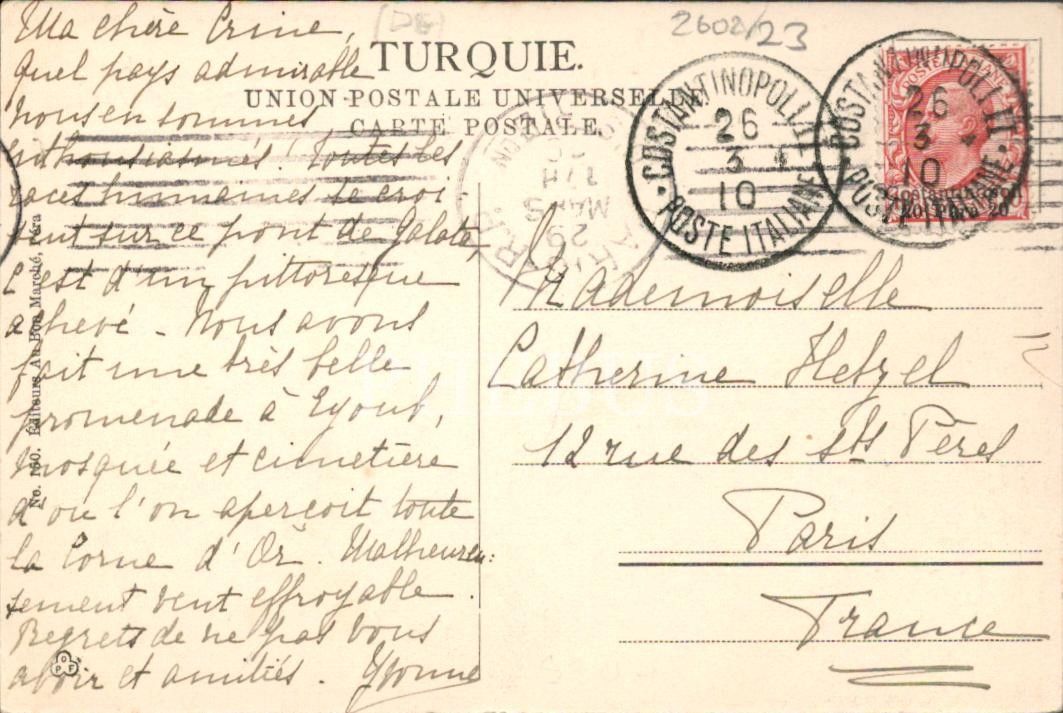 Ma chère Crine,
quel pays admirable
nous en sommes
enthousiasmés ! Toutes les
races humaines se croi-
sent sur ce pont de Galata,
c'est d'un pittoresque
achevé - Nous avons
fait une très belle
promenade à Eyoub,
mosquée et cimetière
d'ou l'on aperçoit toute
la Corne d'Or. Malheureu:
sement vent effroyable.
Regrets de ne pas vous
avoir et amitiés. Yvonne
No. 180. Éditeurs Au Bon Marché, Péra
(DE)
2602/23
TURQUIE.
UNION POSTALE UNIVERSELLE.
CARTE POSTALE.
COSTANTINOPOLI
26
3 4
10
POSTE ITALIANE
COSTANTINOPOLI
26
3 4
10
POSTE ITALIANE
Constantinople
20 Para 20
Mademoiselle
Catherine Hetzel
12 rue des Sts Pères
Paris
France
PHEBUS